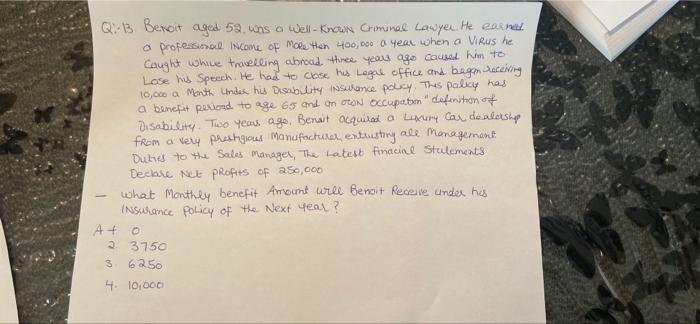 Q:-13. Benoit aged 52, was a Well-Known Criminal Lawyer. He earned
a professional Income of More then 400,000 a year when a Virus he
Caught while travelling abroad three years ago caused him to
Lose his Speech. He had to close his Legal office and began receiving
10,000 a Month Under his Disability insurance policy. This policy has
a benefit period to age 65 and an own occupation" definition of
Disability. Two years ago, Benoit acquired a Luxury Car dealership
from a very prestigious Manufacturer, entrusting all Management
Duties to the Sales Manager, The Latest finacial Statements
Declare Net profits of 250,000
- What Monthly benefit Amount will Benoit Receive under his
Insurance Policy of the Next year?
0
2. 3750
3. 6250
4. 10,000